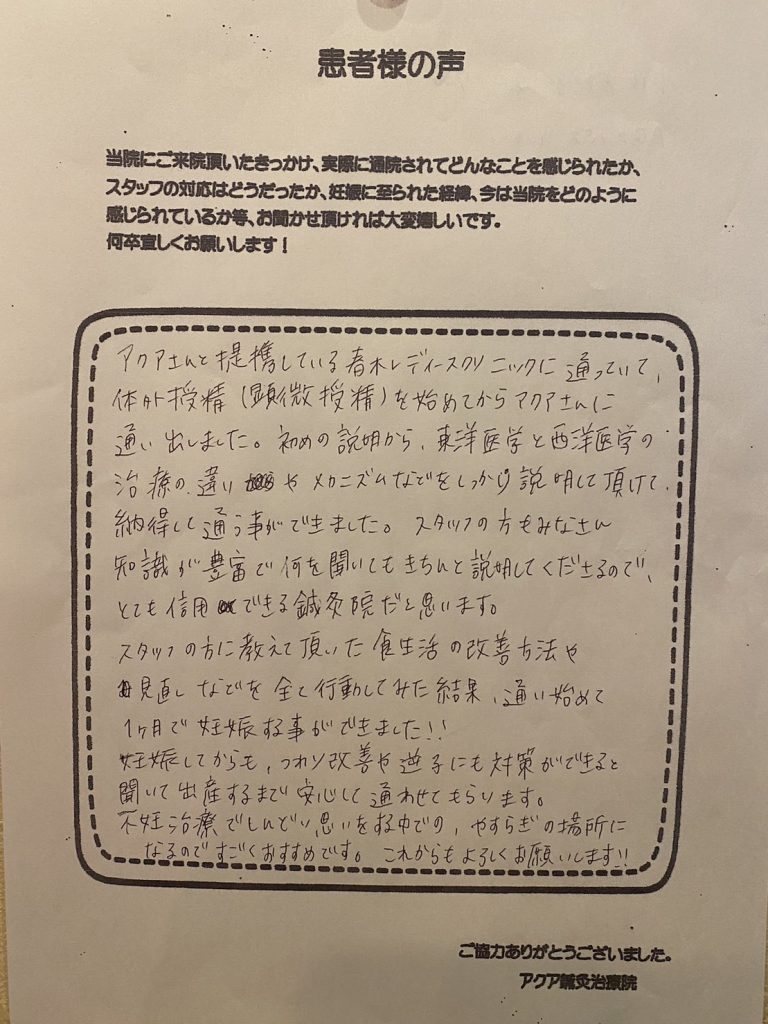 患者様の声
当院にご来院頂いたきっかけ、実際に通院されてどんなことを感じられたか、
スタッフの対応はどうだったか、妊娠に至られた経緯、今は当院をどのように
感じられているか等、お聞かせ頂ければ大変嬉しいです。
何卒宜しくお願いします！
アクアさんと提携している春木レディースクリニックに通っていて、
体外授精（顕微授精）を始めてからアクアさんに
通い出しました。初めの説明から、東洋医学と西洋医学の
治療の違いやメカニズムなどをしっかり説明して頂けて
納得して通う事ができました。スタッフの方もみなさん
知識が豊富で何を聞いてもきちんと説明してくださるので、
とても信用できる鍼灸院だと思います。
スタッフの方に教えて頂いた食生活の改善方法や
見直しなどを全て行動してみた結果、通い始めて
1ヶ月で妊娠する事ができました!!
妊娠してからも、つわり改善や逆子にも対策ができると
聞いて出産するまで安心して通わせてもらいます。
不妊治療でしんどい思いをする中での、やすらぎの場所に
なるのですごくおすすめです。これからもよろしくお願いします!!
ご協力ありがとうございました。
アクア鍼灸治療院